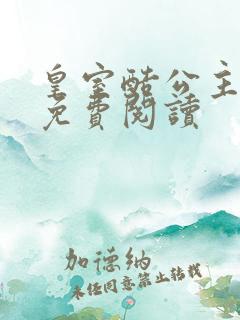 皇室酷公主
免費閱讀
加德纳
未经同意禁止转载